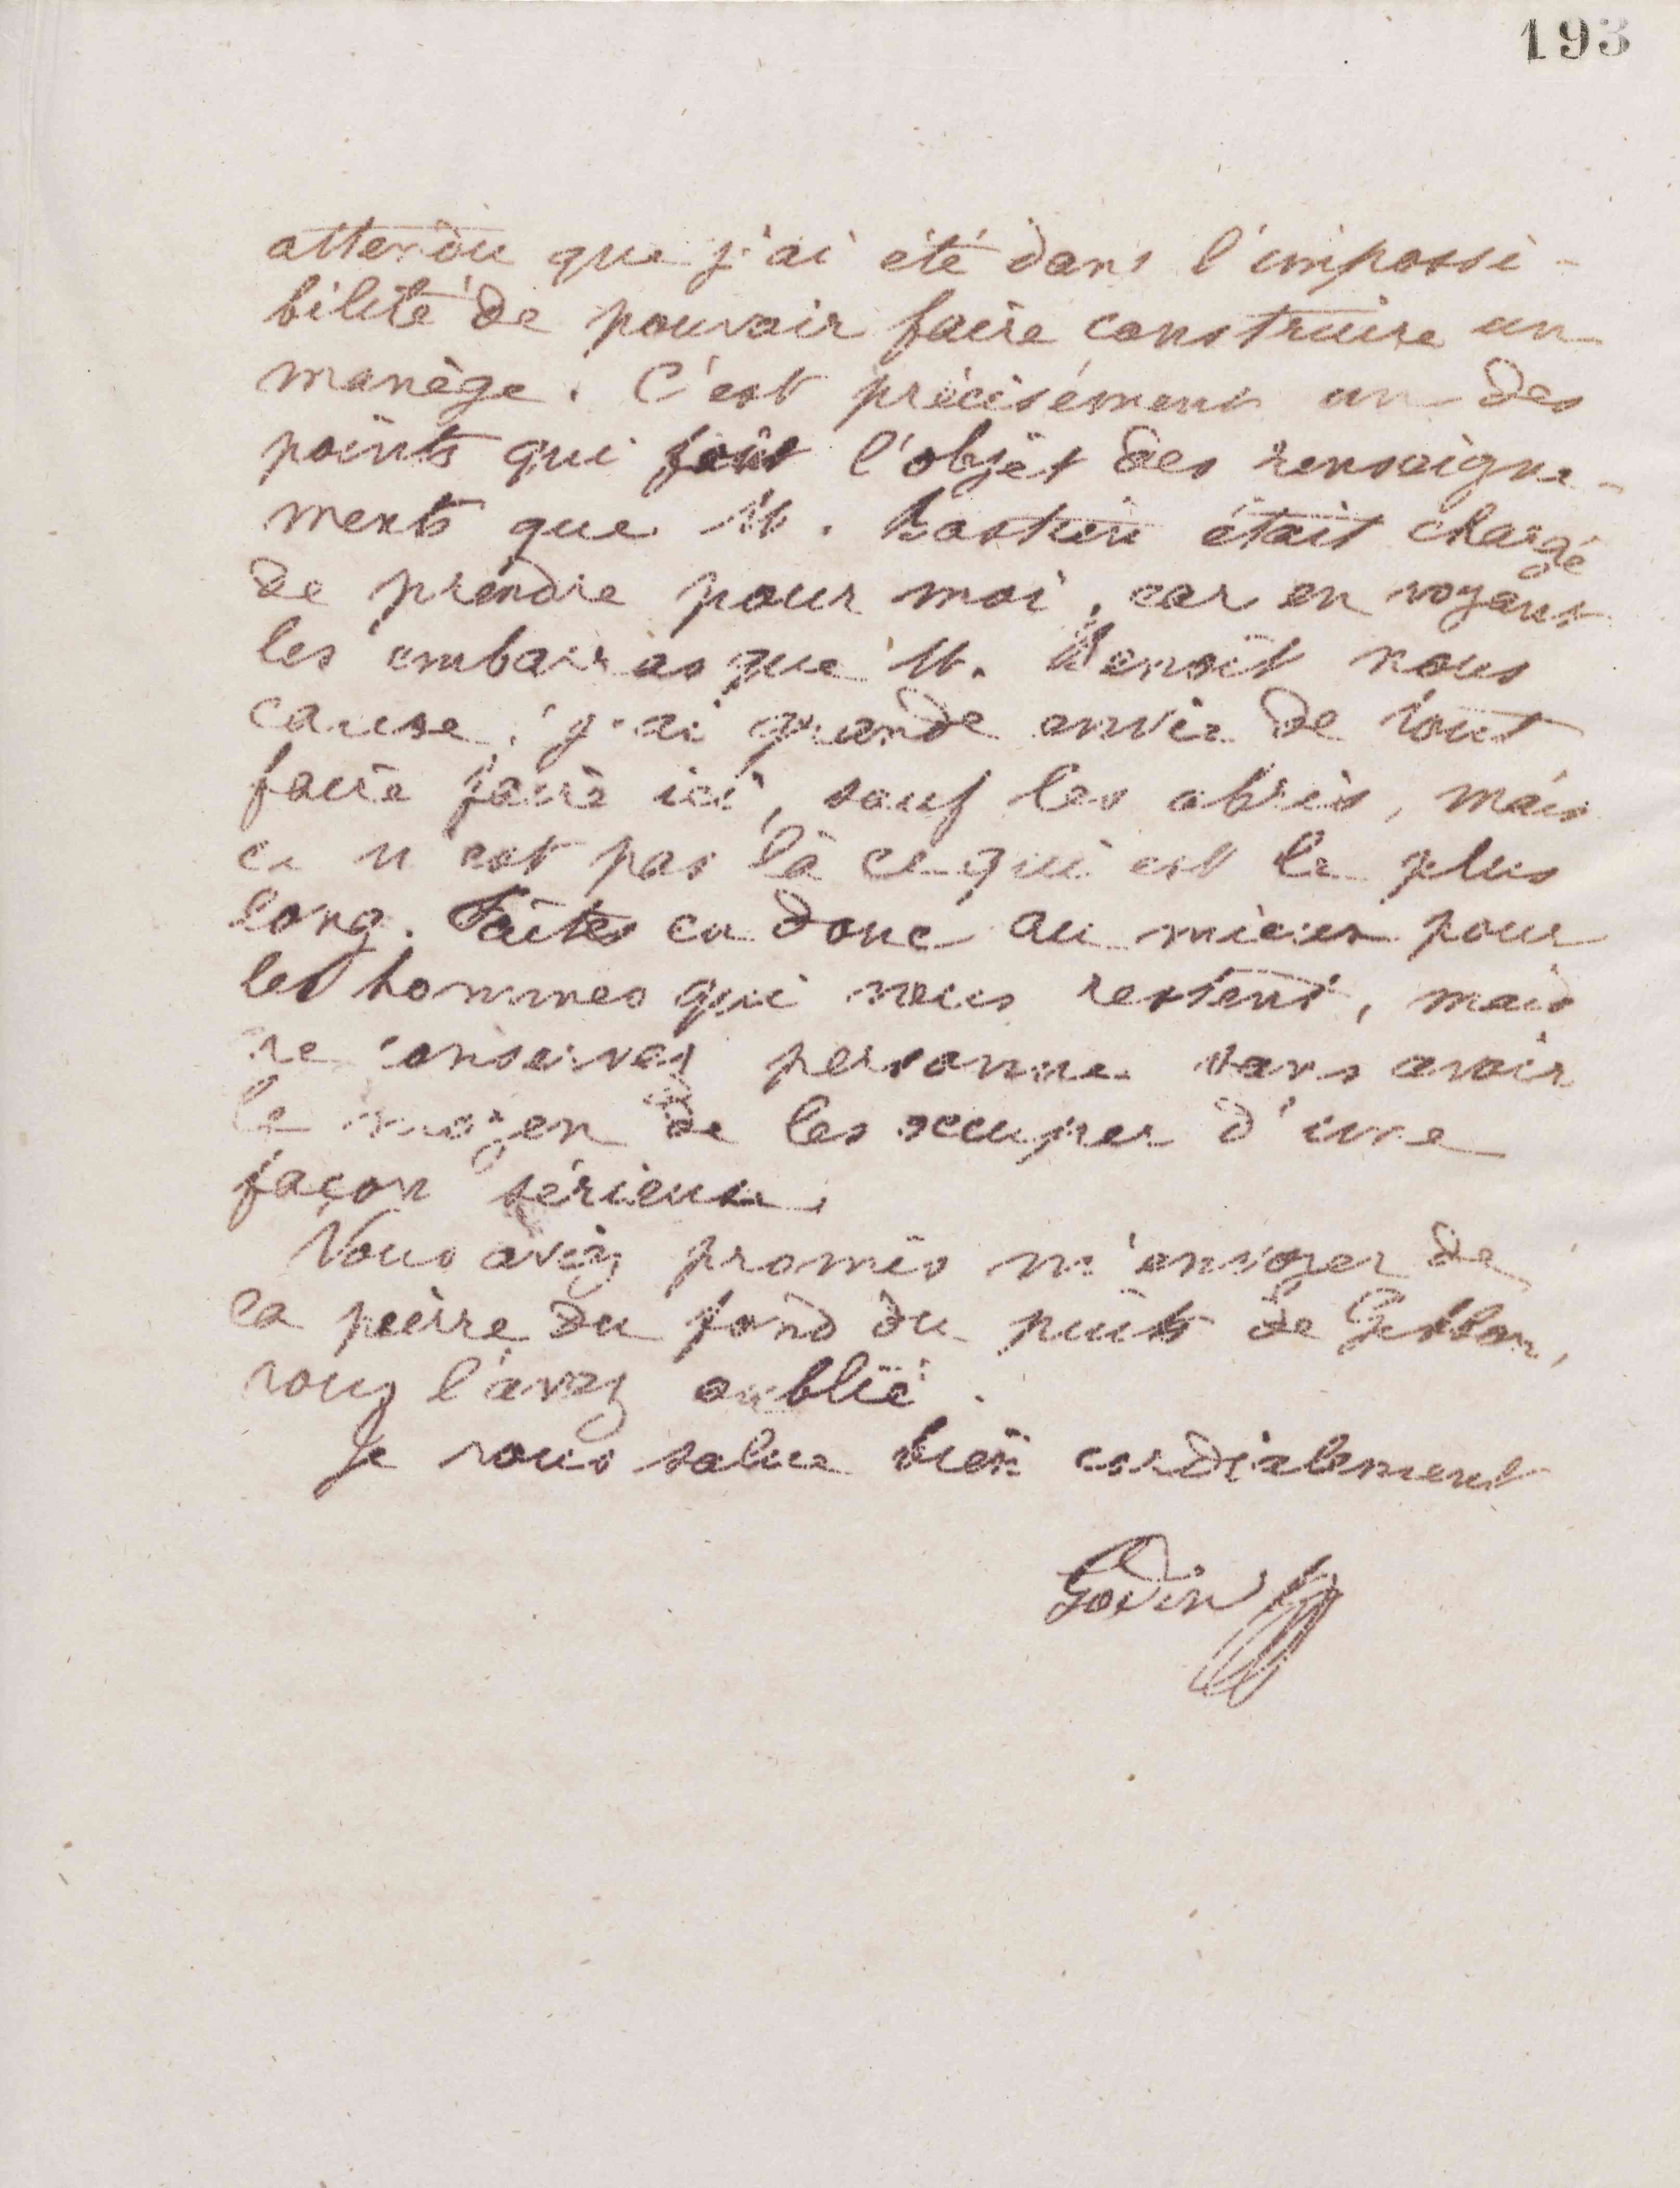 193
attendu que j'ai été dans l'impossi-
bilité de pouvoir faire construire un
manège. C'est précisément un des
points qui font l'objet des renseigne-
ments que M. était chargé
de prendre pour moi, car en voyant
les embarras que M. Benoît nous
cause, j'ai grande envie de tout
faire faire ici, sauf les abris, mais
ce n'est pas là ce qui est le plus
long. Faites en donc au mieux pour
les hommes qui nous restent, mais
ne conservez personne sans avoir
le moyen de les occuper d'une
façon sérieuse.
Vous aviez promis m'envoyer de
la pierre du fond du puits de
vous l'avez oublié.
Je vous salue bien cordialement
Godin